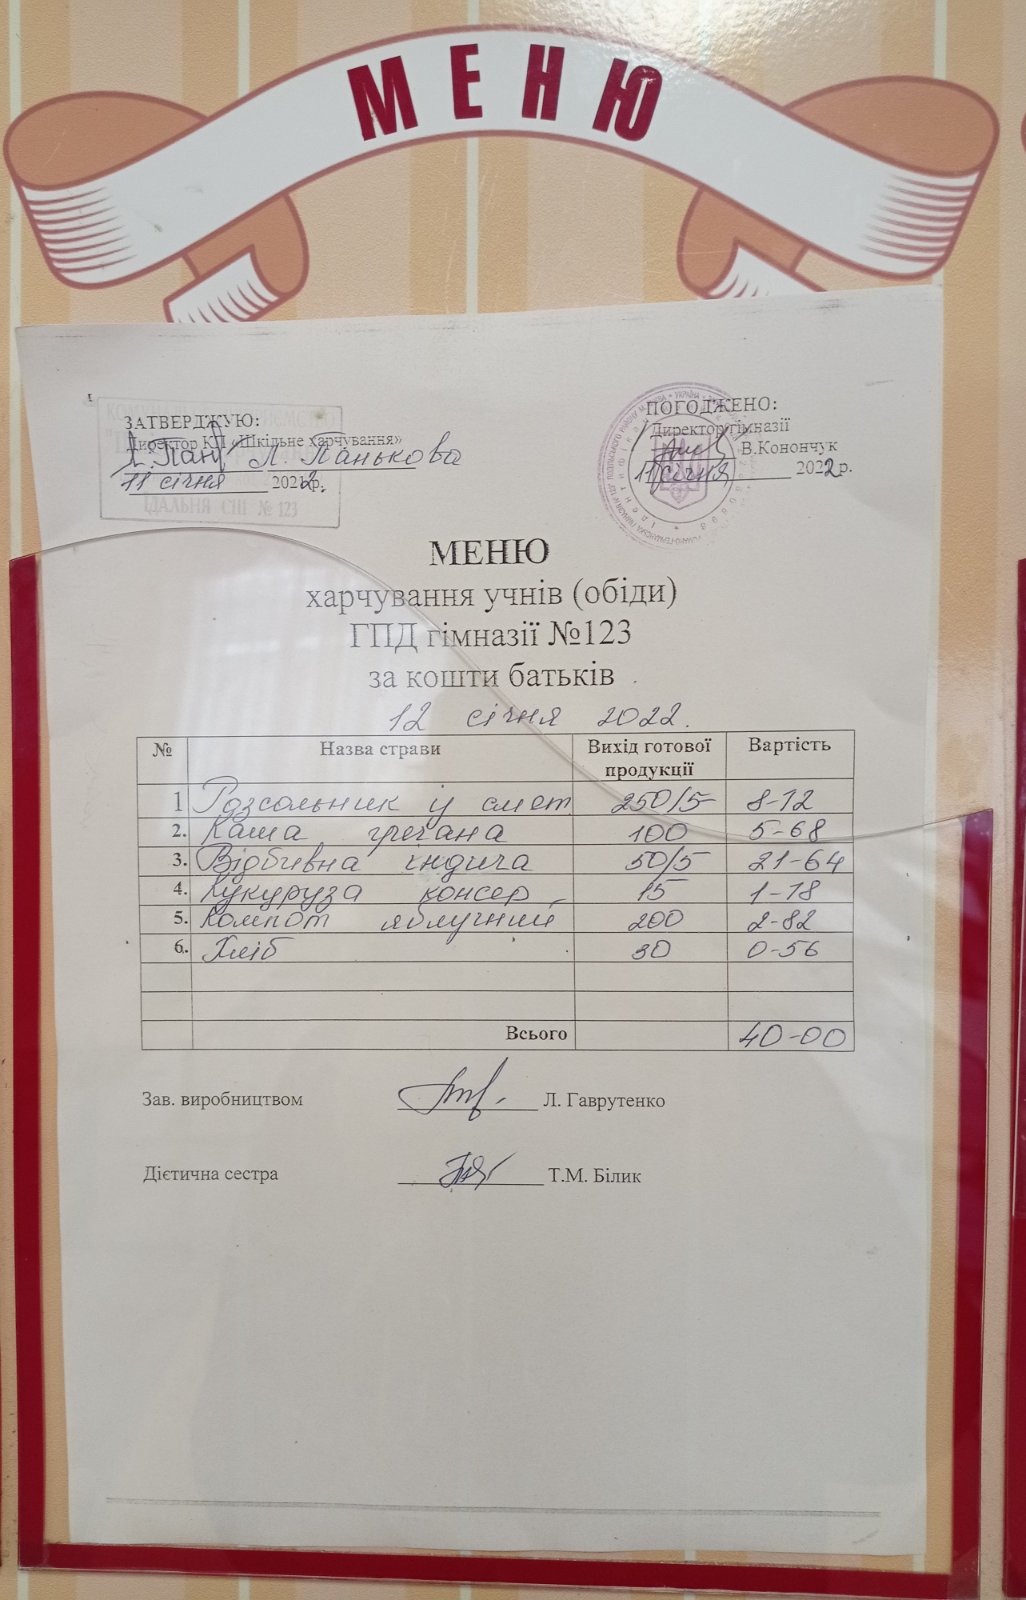 МЕНЮ
ЗАТВЕРДЖУЮ:
Директор КП «Шкільне харчування»
Л. Панькова
11 січня 2022 р.
ЇДАЛЬНЯ СШ № 123
ПОГОДЖЕНО:
Директор гімназії
В.Конончук
11 січня 2022 р.
МЕНЮ
харчування учнів (обіди)
ГПД гімназії №123
за кошти батьків
12 січня 2022.
№ Назва страви Вихід готової продукції Вартість
1 Розсольник із смет. 250/5 8-12
2. Каша гречана 100 5-68
3. Відбивна індича 50/5 21-64
4. Кукуруза консер. 15 1-18
5. Компот яблучний 200 2-82
6. Хліб 30 0-56
Всього 40-00
Зав. виробництвом Л. Гаврутенко
Дієтична сестра Т.М. Білик